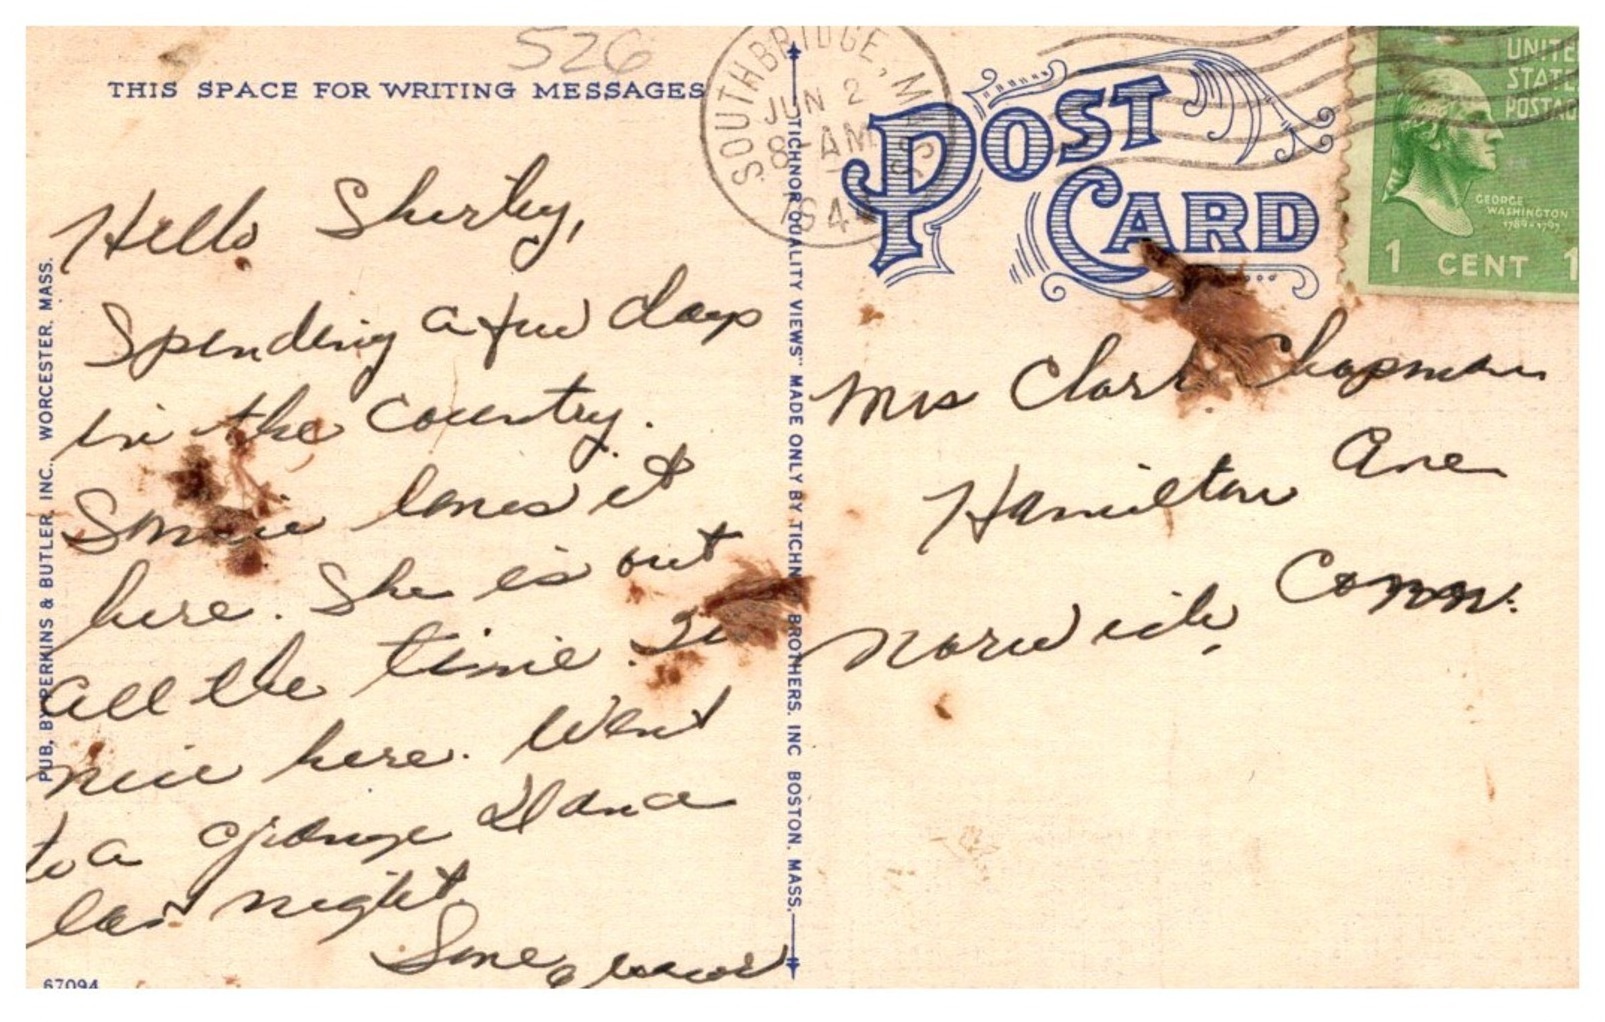 526
THIS SPACE FOR WRITING MESSAGES
Hello Shirley,
Spending a few days
in the Country.
loves it
here. She is out
all the time. So
nice here. Went
to a Grange Dance
las night.
PUB. BY PERKINS & BUTLER, INC., WORCESTER, MASS.
67094
"TICHNOR QUALITY VIEWS" MADE ONLY BY TICHNOR BROTHERS, INC BOSTON, MASS.
SOUTHBRIDGE, MASS
JUN 2
8 - AM
194
POST
CARD
UNITED
STATES
POSTAGE
GEORGE
WASHINGTON
1789-1797
1 CENT 1
Mrs Clark Chapman
Hamilton Ave
Norwich, Conn.